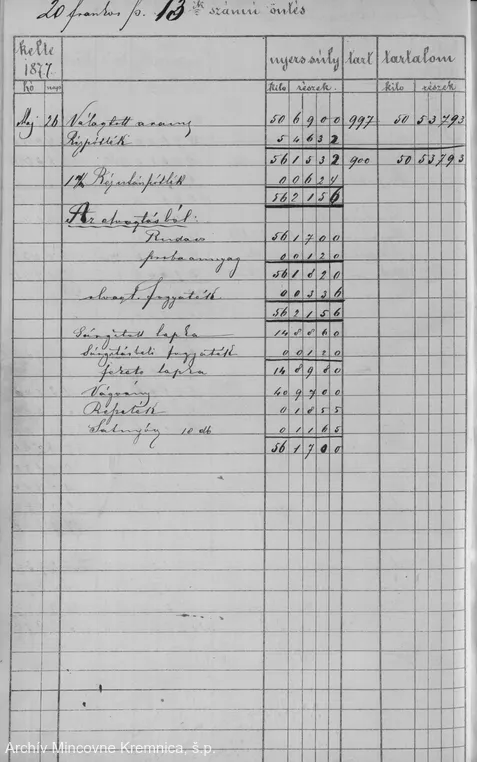 20 frankos 13 ik számú öntés
kelte 1877. nyerssúly tart tartalom
hó nap kilo részek. kilo részek
Maj 26 Válogtott arany 50 6900 997 50 53793
Rézpótlék 5 4632
56 1532 900 50 53793
Rézpótlék 0 0624
56 2156
Az olvasztásból:
Rudacs 56 1700
próbaanyag 0 0120
56 1820
olvaszt. fogyaték 0 0336
56 2156
Sárgított lapka 14 8860
Sárgításbeli fogyaték 0 0120
fezete lapka 14 8980
Vágvány 40 9700
Repeték 0 1855
10 db 0 1165
56 1700
Archív Mincovne Kremnica, š.p.